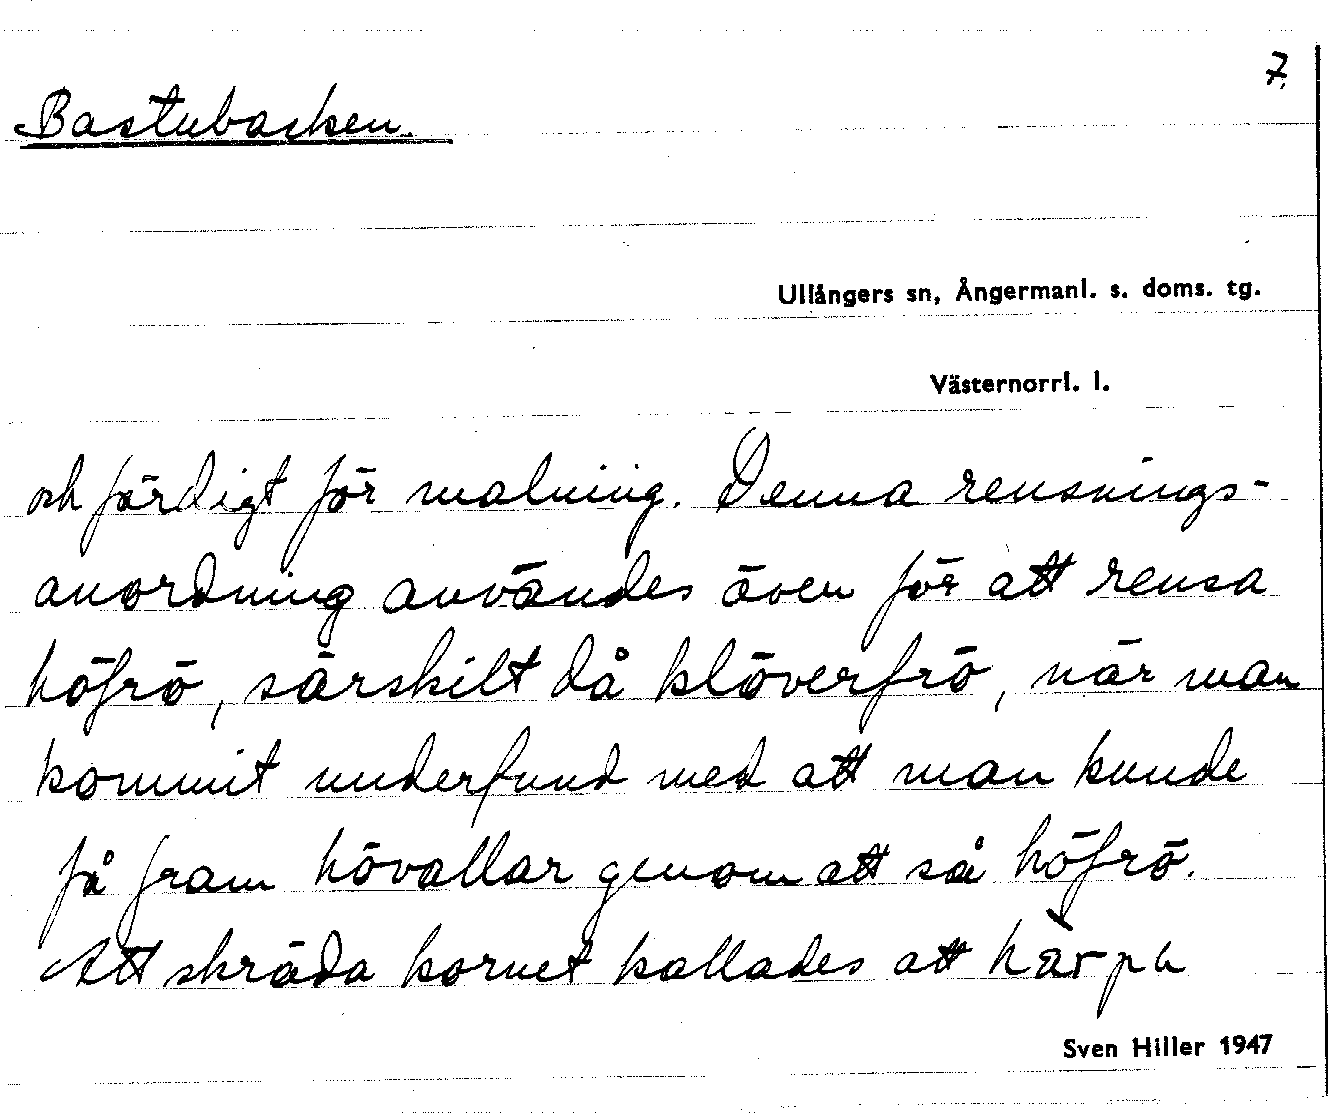 7.
Bastubacken.
Ullångers sn, Ångermanl. s. doms. tg.
Västernorrl. l.
och färdigt för malning. Denna rensnings-
anordning användes även för att rensa
höfrö, särskilt då klöverfrö, när man
kommit underfund med att man kunde
få fram hövallar genom att så höfrö.
Att skräda kornet kallades att
Sven Hiller 1947